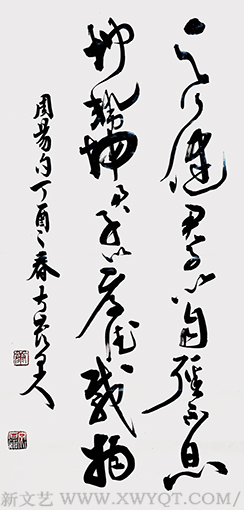 天行健君子以自強不息
地勢坤君子以厚德載物
周易句丁酉之春
新文艺 - WWW.XWYQT.COM/